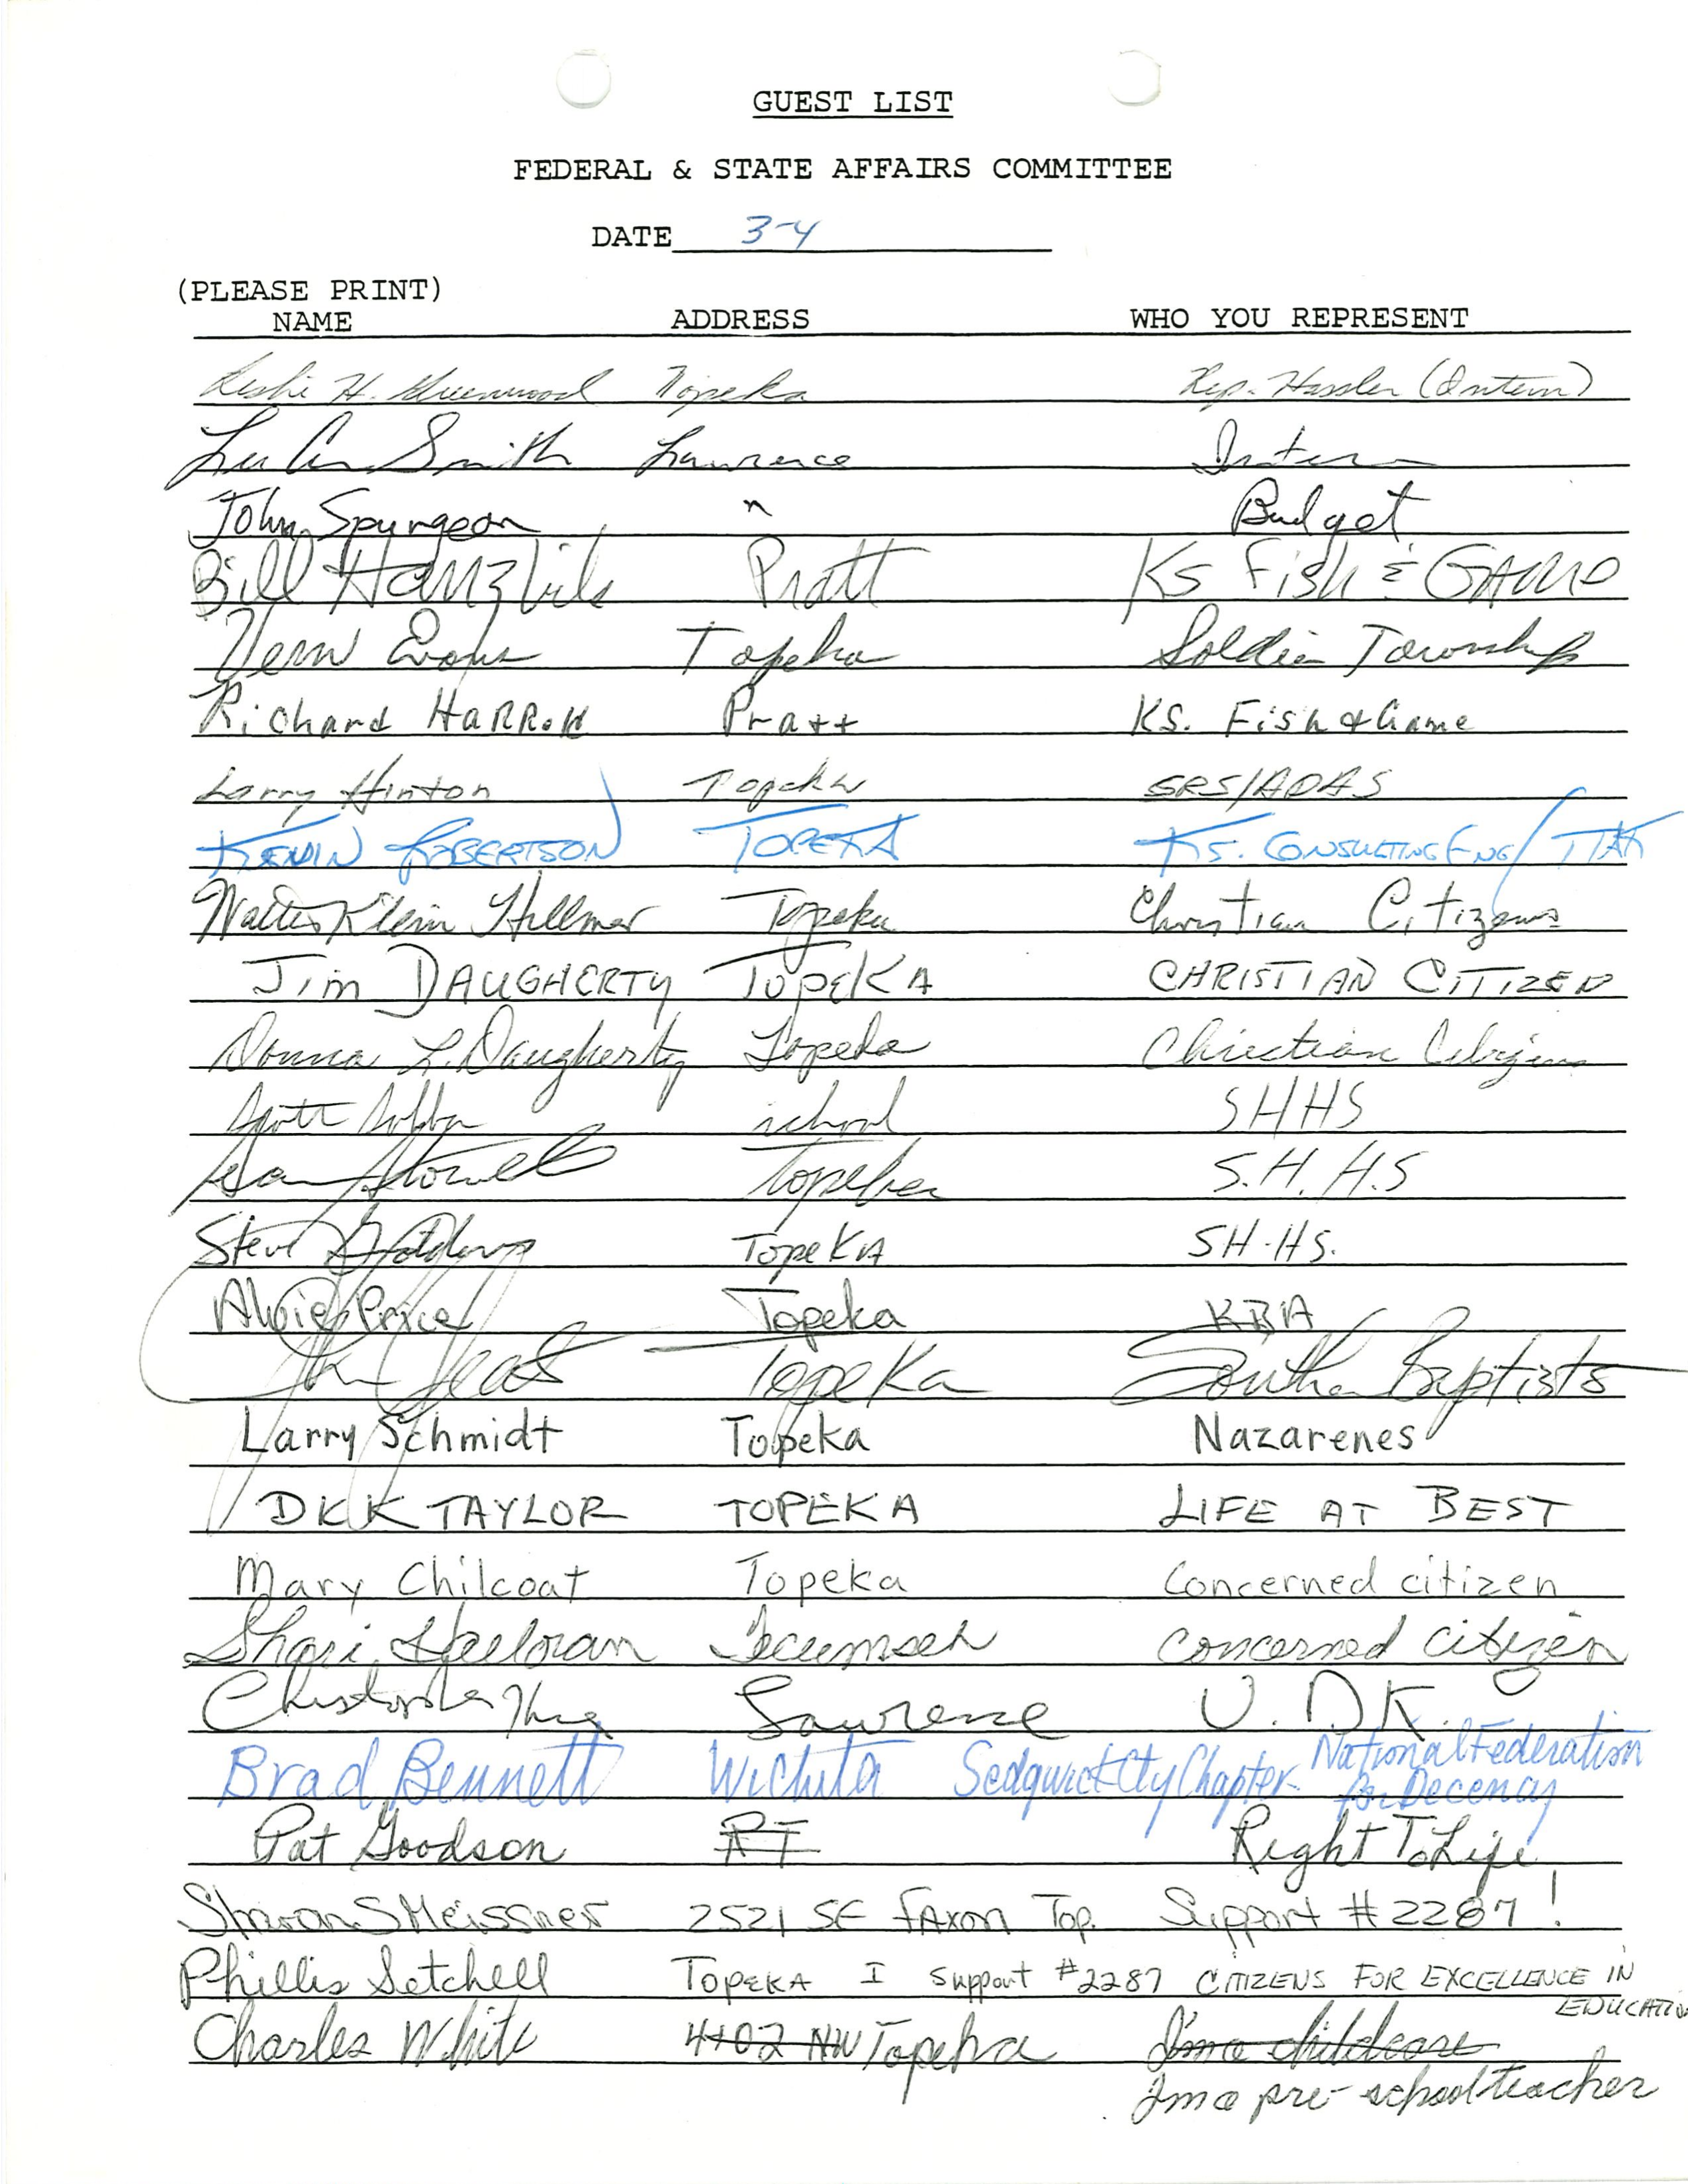 GUEST LIST
FEDERAL & STATE AFFAIRS COMMITTEE
DATE 3-4
(PLEASE PRINT)
NAME ADDRESS WHO YOU REPRESENT
Leslie H. Greenwood Topeka Rep. Hassler (Intern)
Smith Lawrence Intern
John Spurgeon " Budget
Bill Hanzlik Pratt KS Fish & GAME
Vern Evans Topeka Soldier Township
Richard HARROW Pratt KS. Fish & Game
Larry Hinton Topeka SRS/ADAS
KEVIN ROBERTSON TOPEKA KS. CONSULTING ENG/
Walter Klein Hillmer Topeka Christian Citizens
Jim DAUGHERTY TOPEKA CHRISTIAN CITIZEN
Donna L. Daugherty Topeka Christian Citizens
Scott school SHHS
Topeka S.H.H.S
Steve Topeka SH.HS.
Price Topeka KBA
Topeka Southern Baptists
Larry Schmidt Topeka Nazarenes
DKK TAYLOR TOPEKA LIFE AT BEST
Mary Chilcoat Topeka Concerned citizen
Shari Tecumseh concerned citizen
Christopher Lawrence
Brad Bennett Wichita Sedgwick Cty Chapter National Federation
for Decency
Pat Goodson RT Right To Life
Sharon S Meissner 2521 SE FAXON Top. Support #2287!
Phillis Setchell TOPEKA I support #2287 CITIZENS FOR EXCELLENCE IN
EDUCATION
Charles White 4102 NW Topeka I'm a childcare
I'm a pre-school teacher